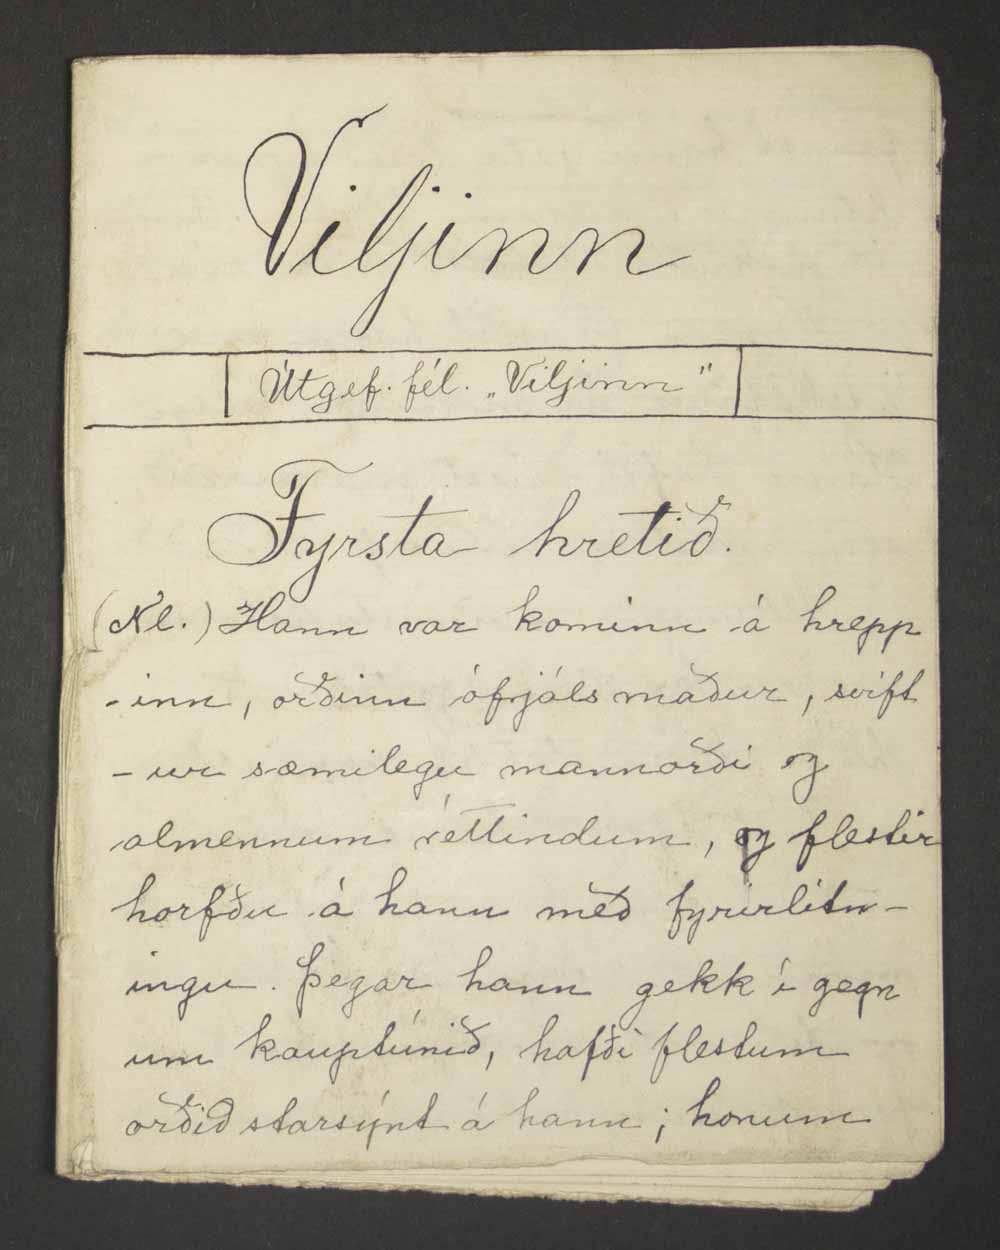 Viljinn
Útgef. fél. „Viljinn"
Fyrsta hretið.
(Nl.) Hann var kominn á hrepp
-inn, orðinn ófrjáls maður, svift
-ur sæmilegu mannorði og
almennum réttindum, og flestir
horfðu á hann með fyrirlitn-
ingu. Þegar hann gekk í gegn
um kauptúnið, hafði flestum
orðið starsýnt á hann; honum